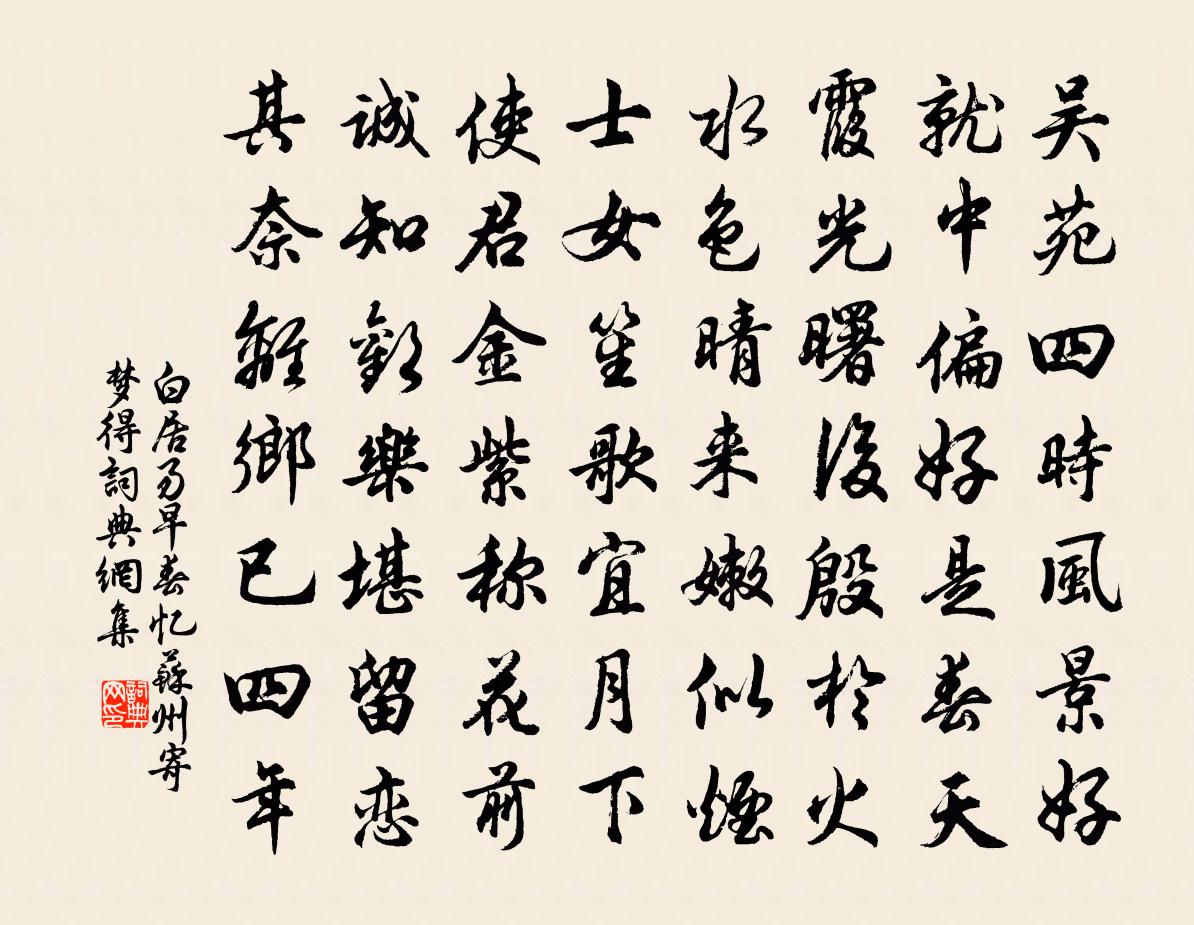 吴苑四時風景好
就中偏好是春天
霞光曙後殷於火
水色晴来嫩似煙
士女笙歌宜月下
使君金紫称花前
誠知歡樂堪留恋
其奈離鄉已四年
白居易早春忆蘇州寄
梦得詞典網集
詞典
网印